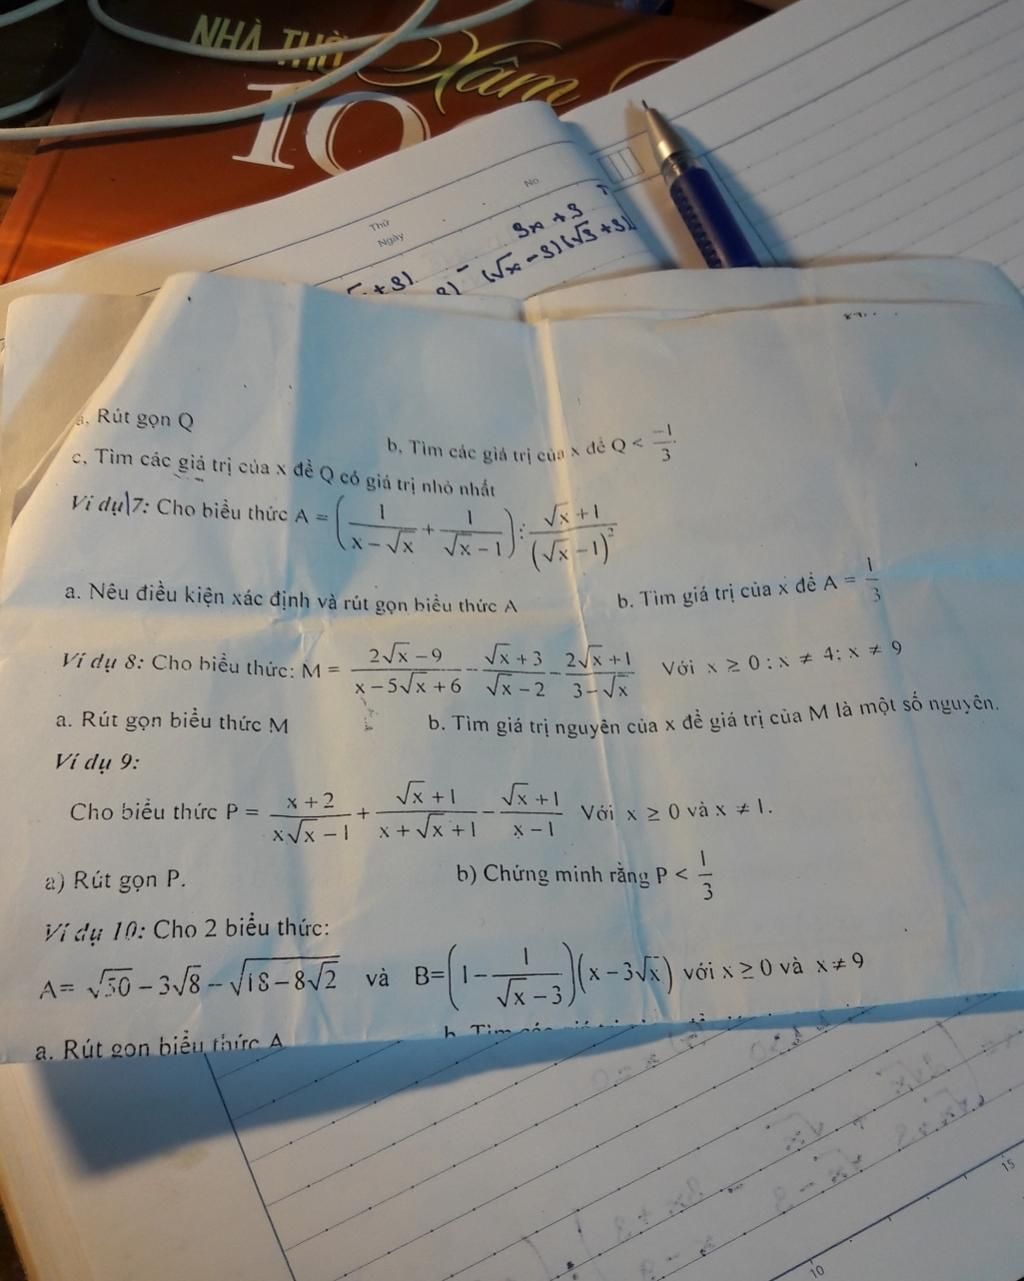 NHÀ THỜ Xâm
10
Thứ
Ngày
No.
3x + 3
+3) - (√x - 3)(√3 + 3)
a, Rút gọn Q
b, Tìm các giá trị của x để Q < -1/3.
c, Tìm các giá trị của x để Q có giá trị nhỏ nhất
Ví dụ 7: Cho biểu thức A = (1/(x - √x) + 1/(√x - 1)) : (√x + 1)/(√x - 1)²
a. Nêu điều kiện xác định và rút gọn biểu thức A
b. Tìm giá trị của x để A = 1/3
Ví dụ 8: Cho biểu thức: M = (2√x - 9)/(x - 5√x + 6) - (√x + 3)/(√x - 2) - (2√x + 1)/(3 - √x) Với x ≥ 0 ; x ≠ 4; x ≠ 9
a. Rút gọn biểu thức M
b. Tìm giá trị nguyên của x để giá trị của M là một số nguyên.
Ví dụ 9:
Cho biểu thức P = (x + 2)/(x√x - 1) + (√x + 1)/(x + √x + 1) - (√x + 1)/(x - 1) Với x ≥ 0 và x ≠ 1.
a) Rút gọn P.
b) Chứng minh rằng P < 1/3
Ví dụ 10: Cho 2 biểu thức:
A= √50 - 3√8 - √(18 - 8√2) và B=(1 - 1/(√x - 3))(x - 3√x) với x ≥ 0 và x ≠ 9
a. Rút gọn biểu thức A
b. Tìm
15
10